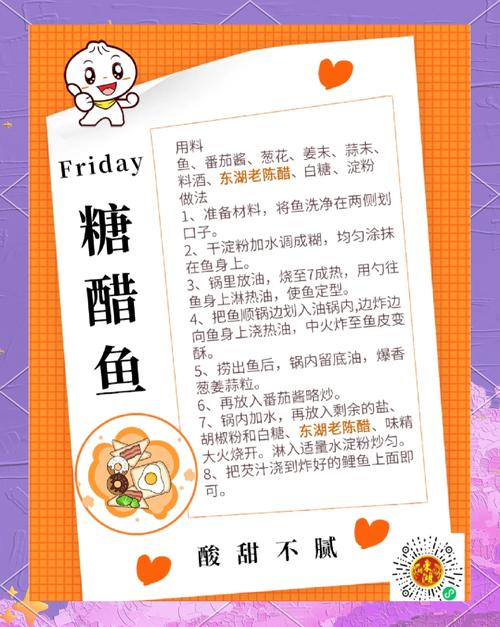 Friday
糖醋鱼
用料
鱼、番茄酱、葱花、姜末、蒜末、
料酒、东湖老陈醋、白糖、淀粉
做法
1、准备材料，将鱼洗净在两侧划
口子。
2、干淀粉加水调成糊，均匀涂抹
在鱼身上。
3、锅里放油，烧至7成热，用勺往
鱼身上淋热油，使鱼定型。
4、把鱼顺锅边划入油锅内，边炸边
向鱼身上浇热油，中火炸至鱼皮变
酥。
5、捞出鱼后，锅内留底油，爆香
葱姜蒜粒。
6、再放入番茄酱略炒。
7、锅内加水，再放入剩余的盐、
胡椒粉和白糖、东湖老陈醋、味精
大火烧开。淋入适量水淀粉炒匀。
8、把芡汁浇到炸好的鲤鱼上面即
可。
酸甜不腻
東湖